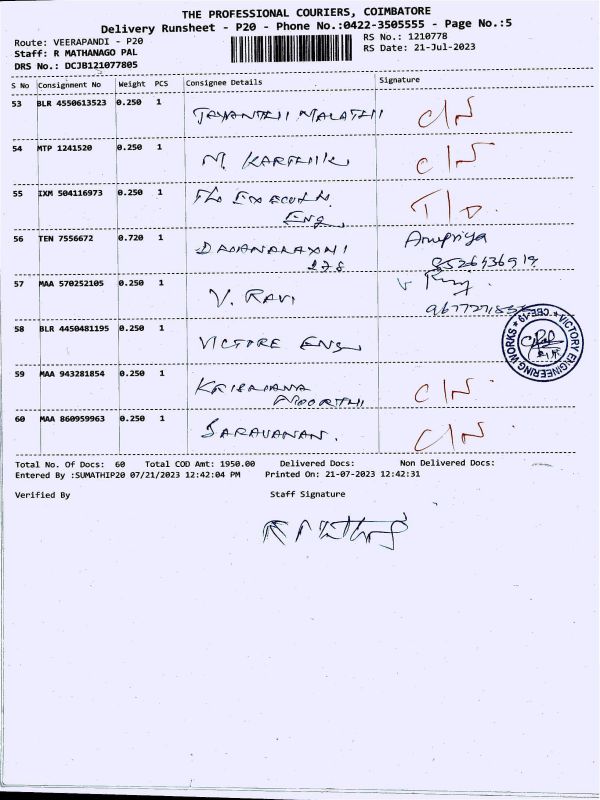 THE PROFESSIONAL COURIERS, COIMBATORE
Delivery Runsheet - P20 - Phone No.:0422-3505555 - Page No.:5
Route: VEERAPANDI - P20
RS No.: 1210778
Staff: R MATHANAGO PAL
RS Date: 21-Jul-2023
DRS No.: DCJB121077805
S No Consignment No Weight PCS Consignee Details Signature
53 BLR 4550613523 0.250 1 JAYANTHI MALATHI C/N
54 MTP 1241520 0.250 1 M. KARTHIK C/N
55 IXM 504116973 0.250 1
Eng T/D.
56 TEN 7556672 0.720 1 Anupriya
278 8526436919
57 MAA 570252105 0.250 1 V. RAVI
58 BLR 4450481195 0.250 1 VICTORE ENG
VICTORY ENGINEERING WORKS * CBE-19 *
59 MAA 943281854 0.250 1 KRISHANA
MOORTHI C/N
60 MAA 860959963 0.250 1 SARAVANAN. C/N
Total No. Of Docs: 60 Total COD Amt: 1950.00 Delivered Docs: Non Delivered Docs:
Entered By :SUMATHIP20 07/21/2023 12:42:04 PM Printed On: 21-07-2023 12:42:31
Verified By Staff Signature